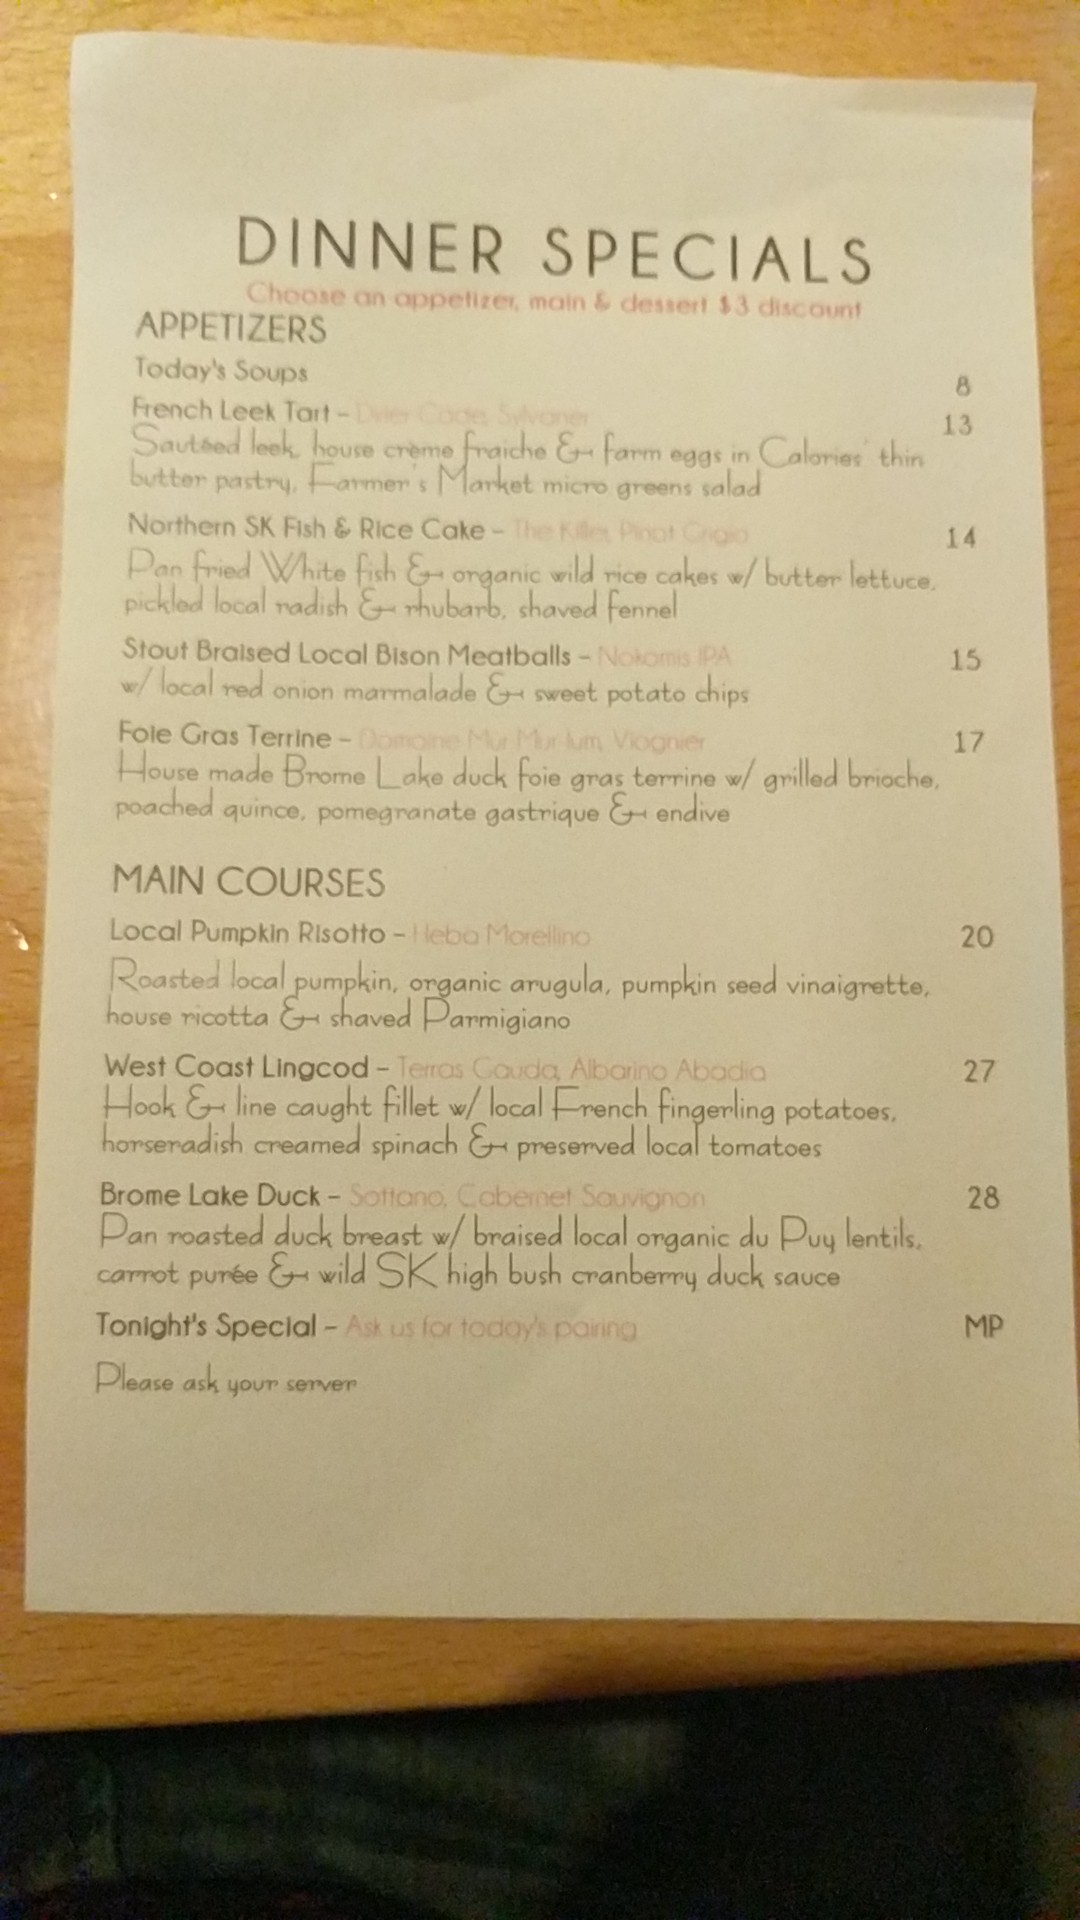 DINNER SPECIALS
Choose an appetizer, main & dessert $3 discount
APPETIZERS
Today's Soups 8
French Leek Tart - Cade, Sylvaner 13
Sautéed leek, house crème fraiche & farm eggs in Calories' thin
butter pastry, Farmer's Market micro greens salad
Northern SK Fish & Rice Cake - The Killer, Pinot Grigio 14
Pan fried White fish & organic wild rice cakes w/ butter lettuce,
pickled local radish & rhubarb, shaved fennel
Stout Braised Local Bison Meatballs - Nokomis IPA 15
w/ local red onion marmalade & sweet potato chips
Foie Gras Terrine - Domaine Mur Mur Ium, Viognier 17
House made Brome Lake duck foie gras terrine w/ grilled brioche,
poached quince, pomegranate gastrique & endive
MAIN COURSES
Local Pumpkin Risotto - Heba Morellino 20
Roasted local pumpkin, organic arugula, pumpkin seed vinaigrette,
house ricotta & shaved Parmigiano
West Coast Lingcod - Terras Gauda, Albarino Abadia 27
Hook & line caught fillet w/ local French fingerling potatoes,
horseradish creamed spinach & preserved local tomatoes
Brome Lake Duck - Sottano, Cabernet Sauvignon 28
Pan roasted duck breast w/ braised local organic du Puy lentils,
carrot purée & wild SK high bush cranberry duck sauce
Tonight's Special - Ask us for today's pairing MP
Please ask your server